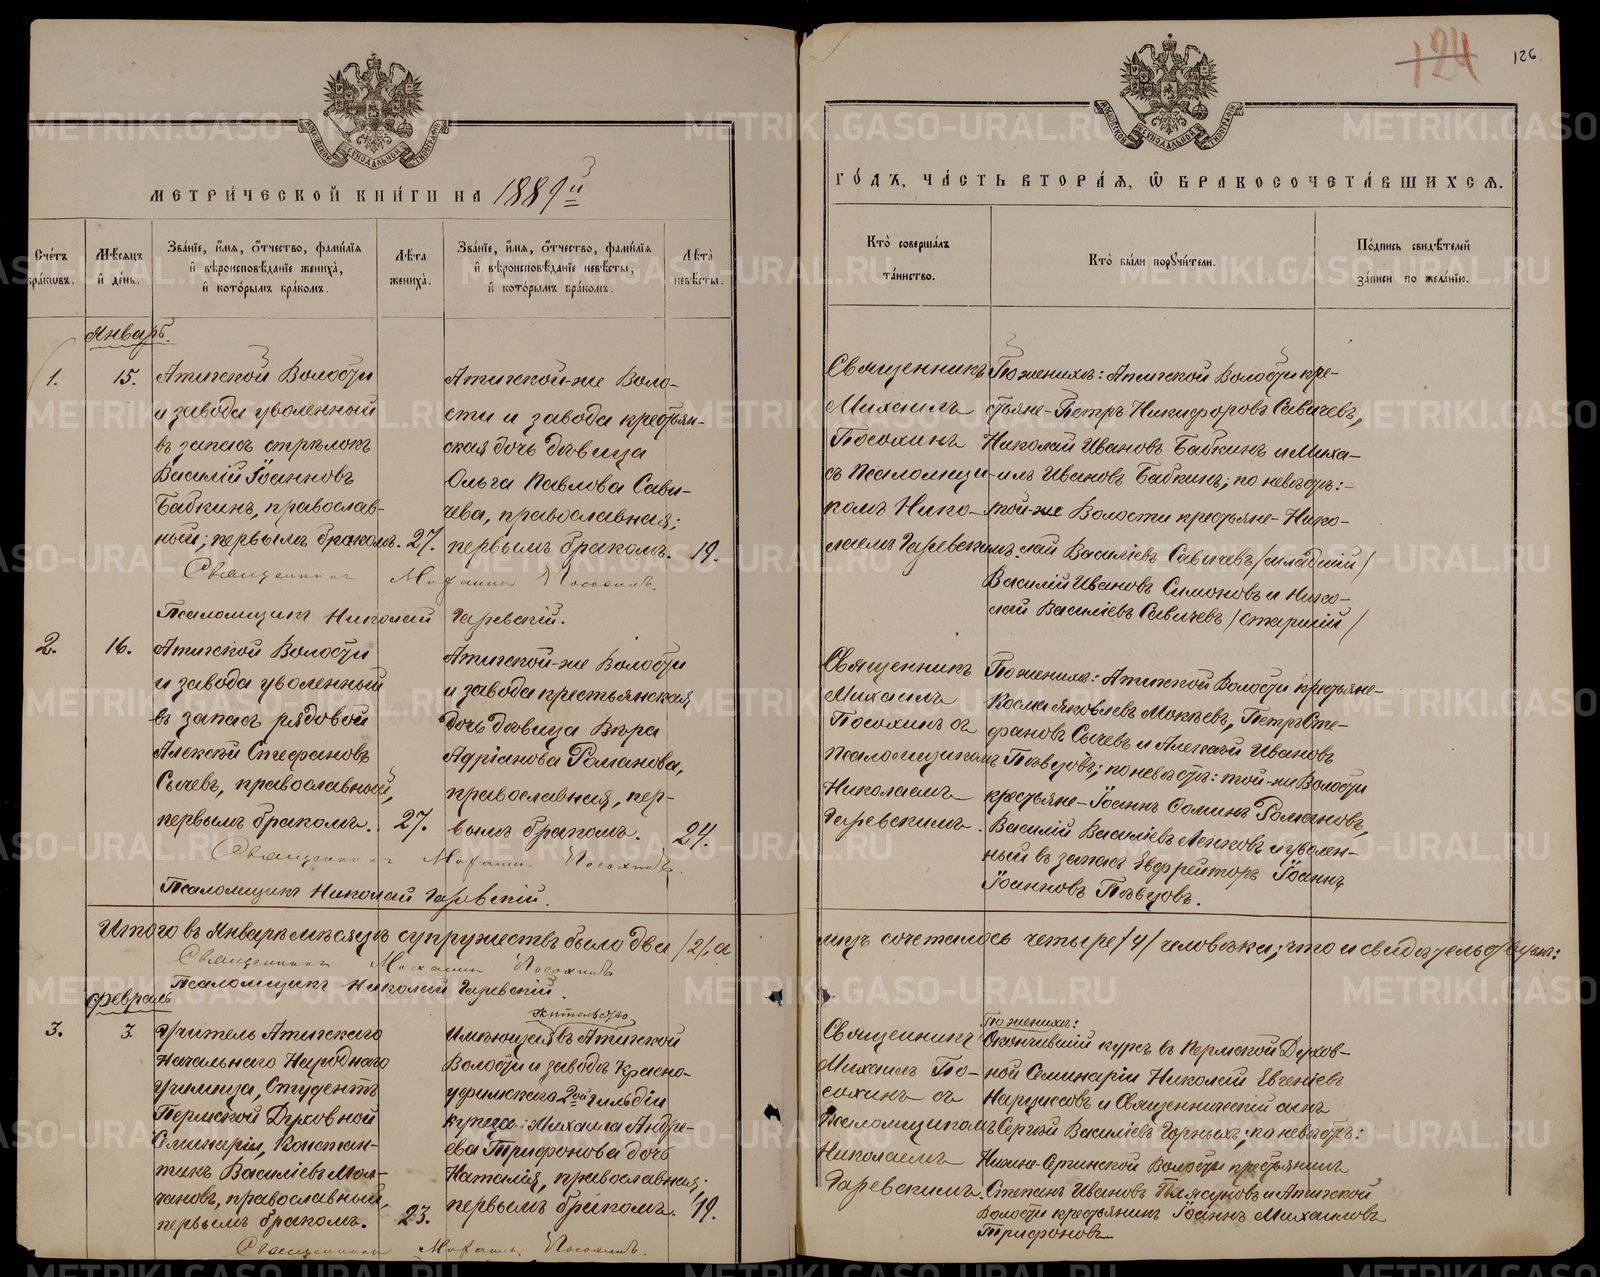 МЕТРИ́ЧЕСКОЙ КНИ́ГИ НА 1889й
Сче́тъ бра́ковъ.
Мѣ́сяцъ и де́нь.
Зва́нїе, и́мя, о́тчество, фами́лїя и вѣроисповѣ́данїе жениха̀, и кото́рымъ бра́комъ.
Лѣ́та жениха̀.
Зва́нїе, и́мя, о́тчество, фами́лїя и вѣроисповѣ́данїе невѣ́сты, и кото́рымъ бра́комъ.
Лѣ́та невѣ́сты.
Январь.
1.
15.
Атигской Волости
и завода уволенный
въ запасъ стрѣлокъ
Василій Іоанновъ
Бабкинъ, православ-
ный; первымъ бракомъ.
27.
Атигской-же Воло-
сти и завода крестьян-
ская дочь дѣвица
Ольга Павлова Сави-
чева, православная;
первымъ бракомъ.
19.
Священникъ Михаилъ Посохинъ.
Псаломщикъ Николай Гаревскій.
2.
16.
Атигской Волости
и завода уволенный
въ запасъ рядовой
Алексѣй Стефановъ
Сычевъ, православный,
первымъ бракомъ.
27.
Атигской-же Волости
и завода крестьянская
дочь дѣвица Вѣра
Адріанова Романова,
православная, пер-
вымъ бракомъ.
24.
Священникъ Михаилъ Посохинъ.
Псаломщикъ Николай Гаревскій.
Итого въ Январѣ мѣсяцѣ супружествъ было два /2/, а
Священникъ Михаилъ Посохинъ
Псаломщикъ Николай Гаревскій.
Февраль
3.
3.
Учитель Атигскаго
Начальнаго Народнаго
Училища, Студентъ
Пермской Духовной
Семинаріи, Констан-
тинъ Василіевъ
православный,
первымъ бракомъ.
23.
жительство
Имѣющая въ Атигской
Волости и заводѣ Красно-
уфимскаго 2ой гильдіи
купца Михаила Андре-
ева Трифонова дочь
Наталія, православная;
первымъ бракомъ.
19.
Священникъ Михаилъ Посохинъ.
124
126
ГО́ДЪ, ЧА́СТЬ ВТОРА́Я, Ѡ БРАКОСОЧЕТА́ВШИХСЯ.
Кто̀ соверша́лъ та́инство.
Кто̀ бы́ли порꙋчи́тели.
По́дпись свидѣ́телей за́писи по жела́нїю.
Священникъ
Михаилъ
Посохинъ
съ Псаломщи-
комъ Нико-
лаемъ Гаревскимъ.
По женихѣ: Атигской Волости кре-
стьяне-Петръ Никифоровъ Савичевъ,
Николай Ивановъ Бабкинъ и Миха-
илъ Ивановъ Бабкинъ; по невѣстѣ:-
той-же Волости крестьяне-Нико-
лай Василіевъ Савичевъ /младшій/
Василій Ивановъ Симоновъ и Нико-
лай Василіевъ Савичевъ /старшій/
Священникъ
Михаилъ
Посохинъ съ
Псаломщикомъ
Николаемъ
Гаревскимъ.
По женихѣ: Атигской Волости крестьяне-
Косма Яковлевъ Мокѣевъ, Петръ Сте-
фановъ Сычевъ и Алексѣй Ивановъ
Пѣвцовъ; по невѣстѣ: той-же Волости
крестьяне-Іоаннъ Ѳоминъ Романовъ,
Василій Василіевъ и уволен-
ный въ запасъ Ефрейторъ Іоаннъ
Іоанновъ Пѣвцовъ.
лицъ сочеталось четыре /4/ человѣка; что и свидѣтельствуемъ:
Священникъ
Михаилъ По-
сохинъ съ
Псаломщикомъ
Николаемъ
Гаревскимъ.
По женихѣ:
Окончившій курсъ въ Пермской Духов-
ной Семинаріи Николай Евгеніевъ
Нарциссовъ и Священническій сынъ
Сергѣй Василіевъ Горныхъ; по невѣстѣ:
Нижне-Сергинской Волости крестьянинъ
Степанъ Ивановъ Плясуновъ и Атигской
Волости крестьянинъ Іоаннъ Михаиловъ
Трифоновъ.
METRIKI.GASO-URAL.RU